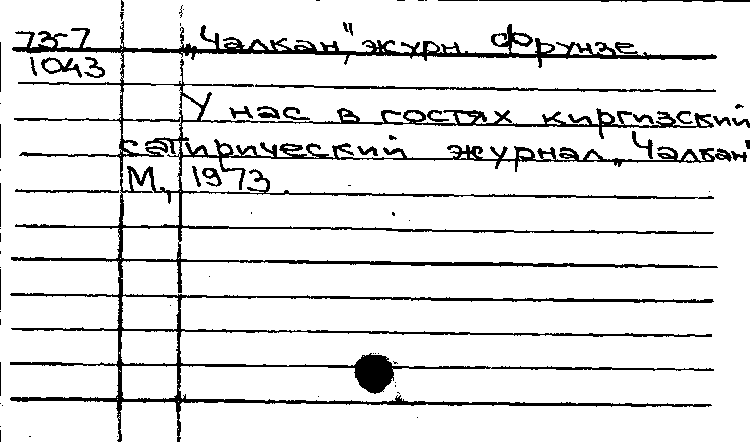 73-7 „Чалкан", журн. Фрунзе.
1043
У нас в гостях киргизский
сатирический журнал „Чалкан"
М., 1973.